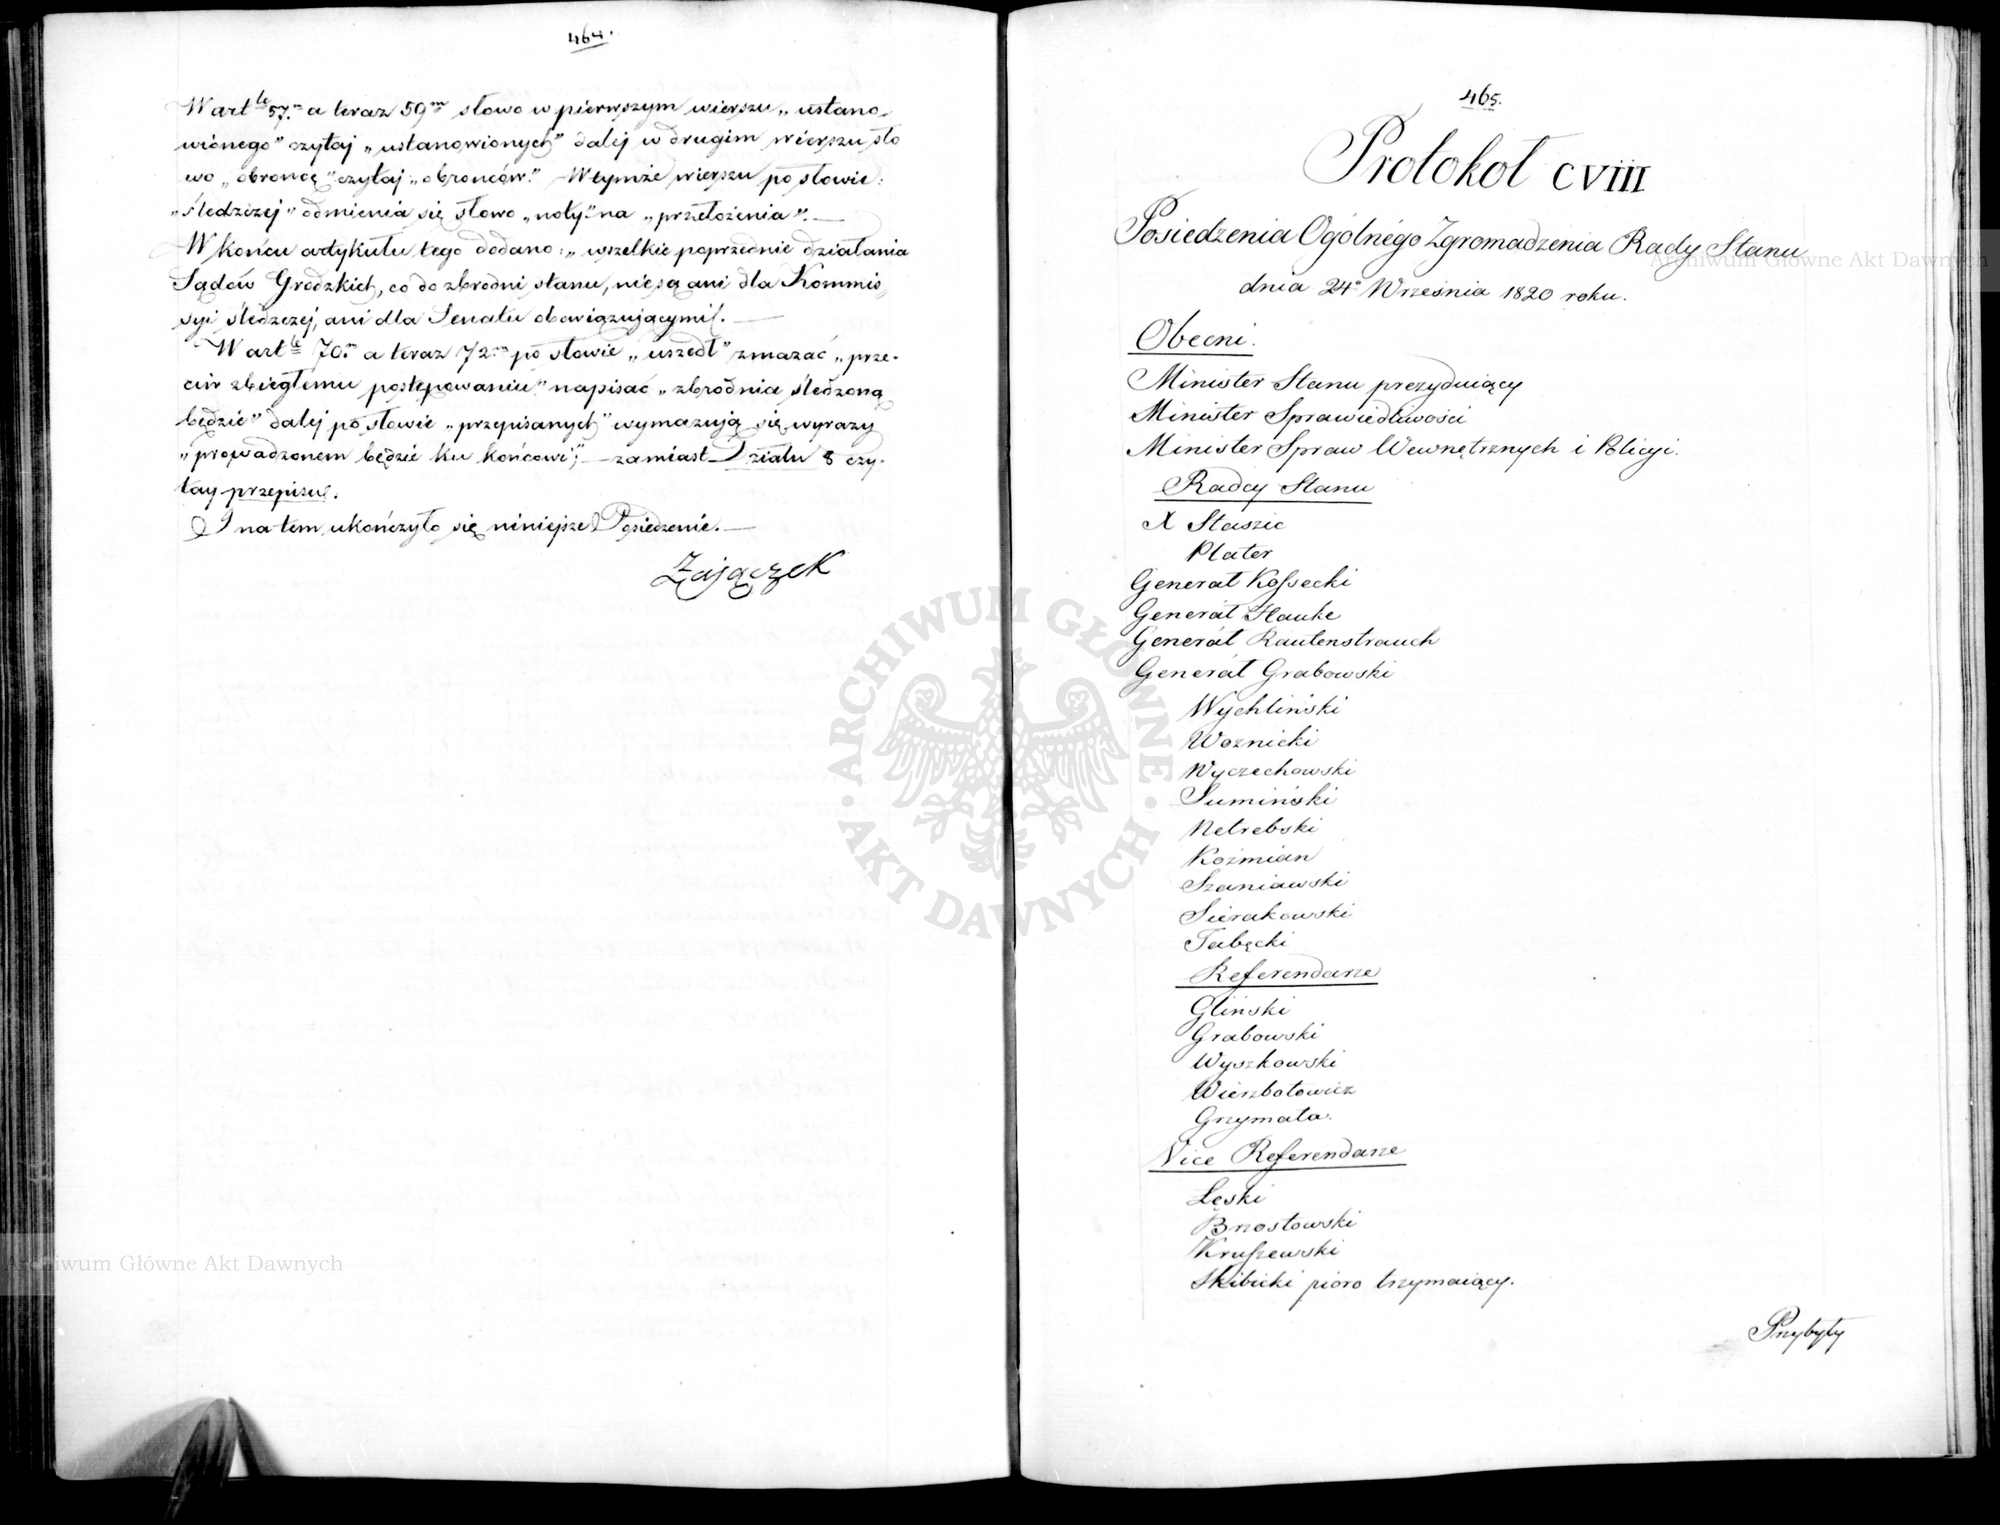 464.
W art<sup>le</sup> 57.<sup>m</sup> a teraz 59<sup>m</sup> słowo w pierwszym wierszu „ustano-
wionego" czytaj „ustanowionych" dalej w drugim wierszu sło
wo „obroncę" czytaj: „obronców." W tymże wierszu po słowie:
„śledzczej" odmienia się słowo „noty" na „przełożenia". —
W końcu artykułu tego dodano: „wszelkie poprzednie działania
Sądów Grodzkich, co do zbrodni stanu, nie są ani dla Kommis
syi śledzczej, ani dla Senatu obowiązującymi". —
W art<sup>le</sup> 70.<sup>m</sup> a teraz 72<sup>m</sup> po słowie „uszedł" zmazać „prze-
ciw zbiegłemu postępowaniu" napisać „zbrodnia śledzoną
będzie" dalej po słowie „przepisanych" wymazują się wyrazy
„prowadzonem będzie ku końcowi"; — zamiast Działu 8 czy-
tay przepisu.
I na tem ukończyło się niniejsze Posiedzenie. —
Zajączek
465.
Protokoł CVIII
Posiedzenia Ogólnégo Zgromadzenia Rady Stanu
dnia 24° Września 1820 roku.
Obecni.
Minister Stanu prezyduiący
Minister Sprawiedliwości
Minister Spraw Wewnętrznych i Policyi.
Radcy Stanu
X Staszic
Plater
Generał Kossecki
Generáł Hauke
Generáł Rautenstrauch
Generáł Grabowski
Wychliński
Woznicki
Wyczechowski
Sumiński
Netrebski
Koźmian
Szaniawski
Sierakowski
Tabęcki
Referendarze
Gliński
Grabowski
Wyszkowski
Wierzbołowicz
Grzymała.
Vice Referendarze
Łęski
Brzostowski
Kruszewski
Skibicki pioro trzymaiący.
Przybyły
Archiwum Główne Akt Dawnych
Archiwum Główne Akt Dawnych
ARCHIWUM GŁÓWNE · AKT DAWNYCH ·